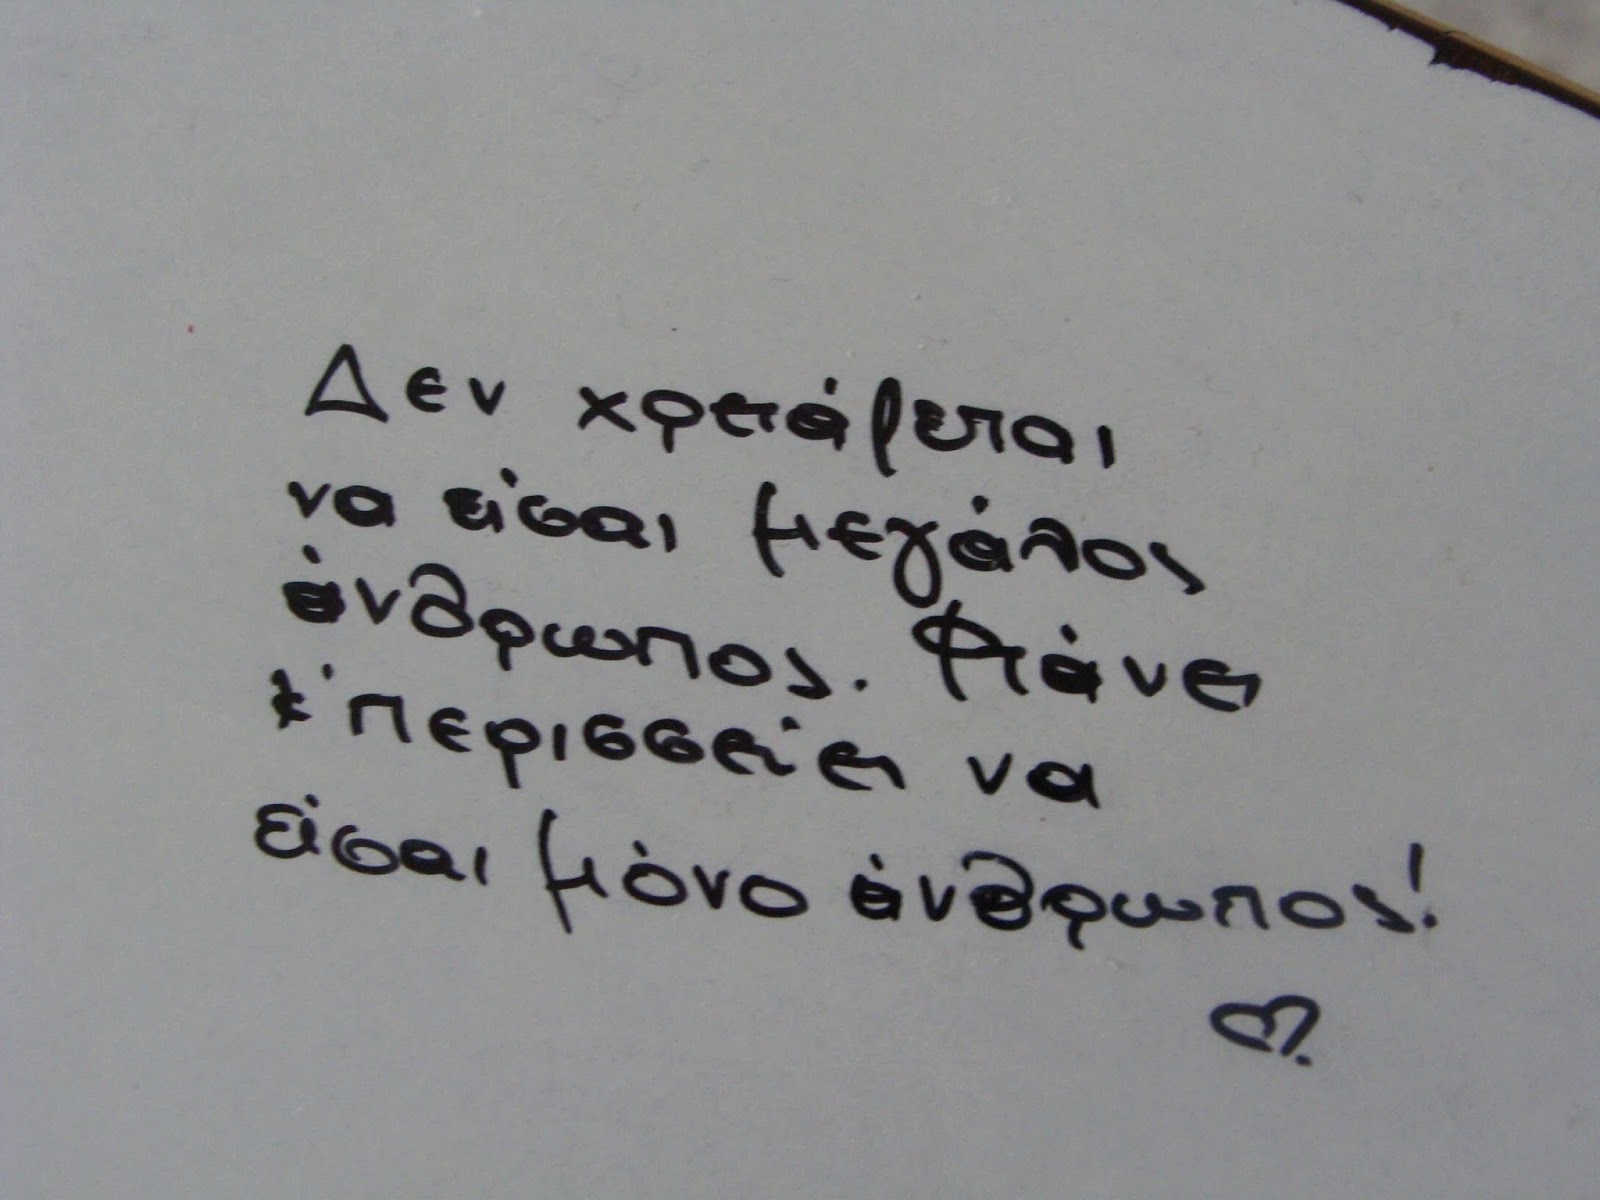 Δεν χρειάζεται
να είσαι μεγάλος
άνθρωπος. Φτάνει
κ' περισσεύει να
είσαι μόνο άνθρωπος!